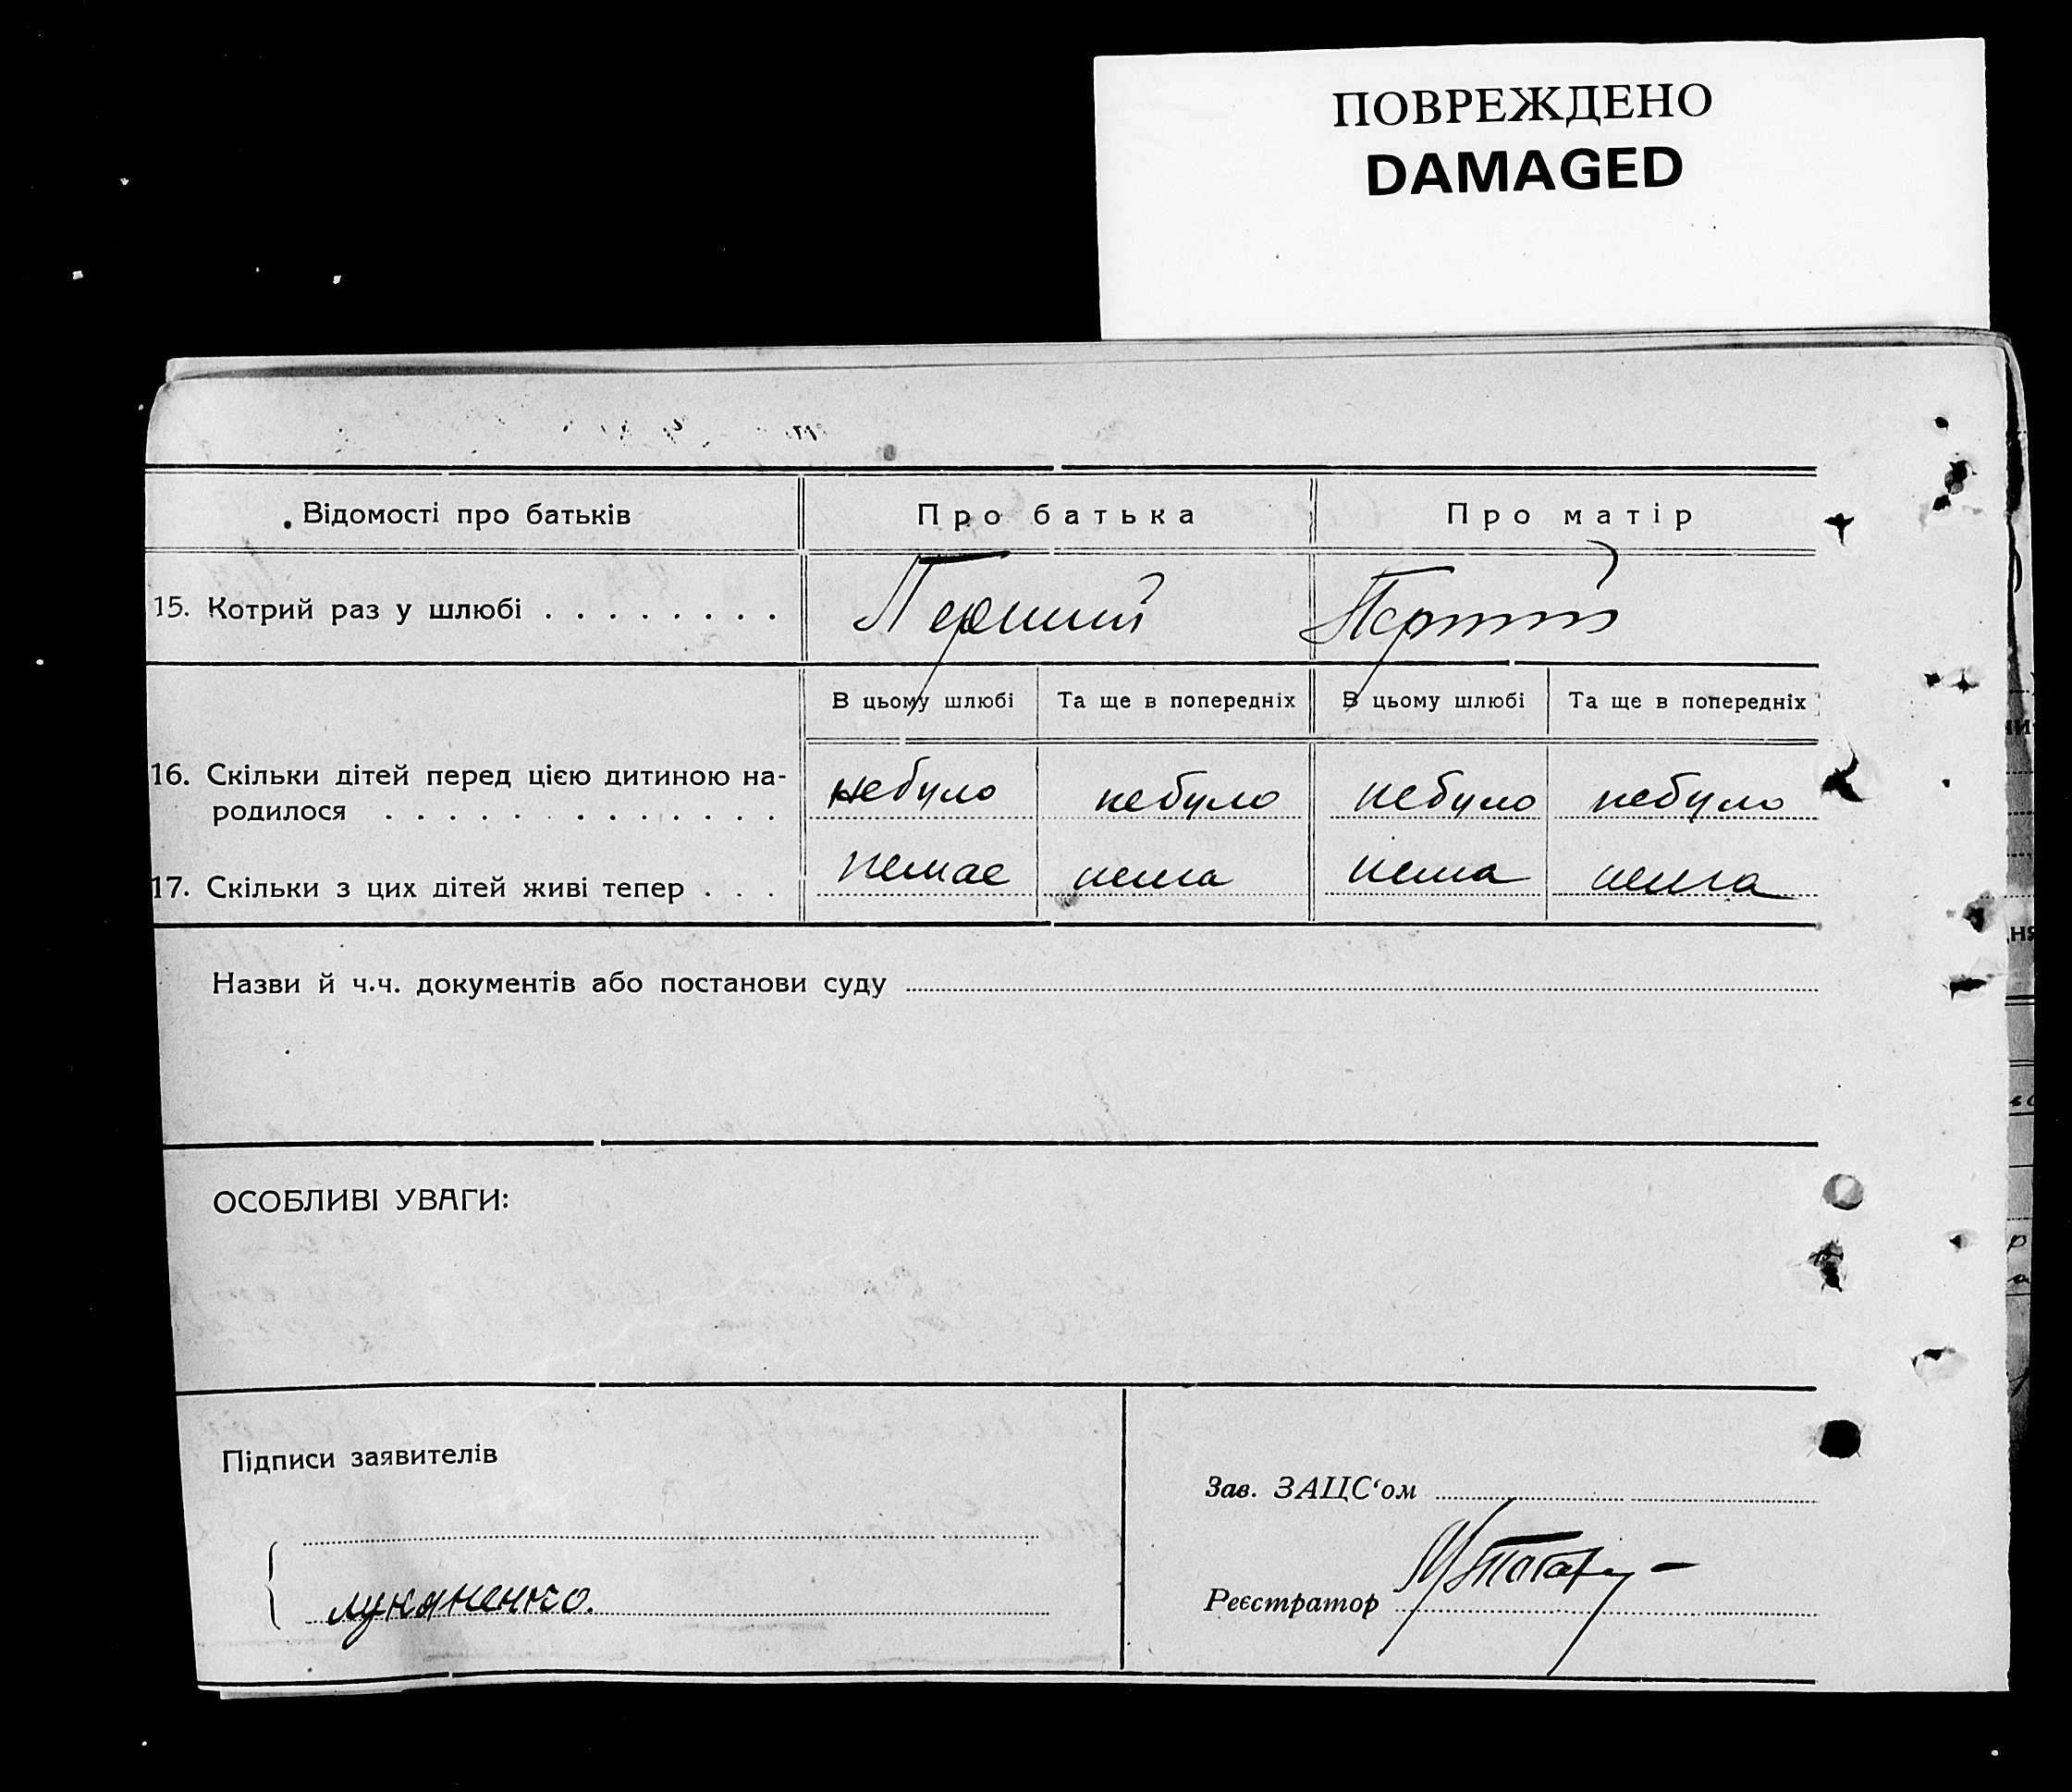 ПОВРЕЖДЕНО
DAMAGED
Відомості про батьків Про батька Про матір
15. Котрий раз у шлюбі . . . . . . . . Перший Перший
В цьому шлюбі Та ще в попередніх В цьому шлюбі Та ще в попередніх
16. Скільки дітей перед цією дитиною на-
родилося . . . . . . . . . . . . . . небуло небуло небуло небуло
17. Скільки з цих дітей живі тепер . . . немає нема нема нема
Назви й ч.ч. документів або постанови суду
ОСОБЛИВІ УВАГИ:
Підписи заявителів
Зав. ЗАЦС‘ом
лукяненко.
Реєстратор